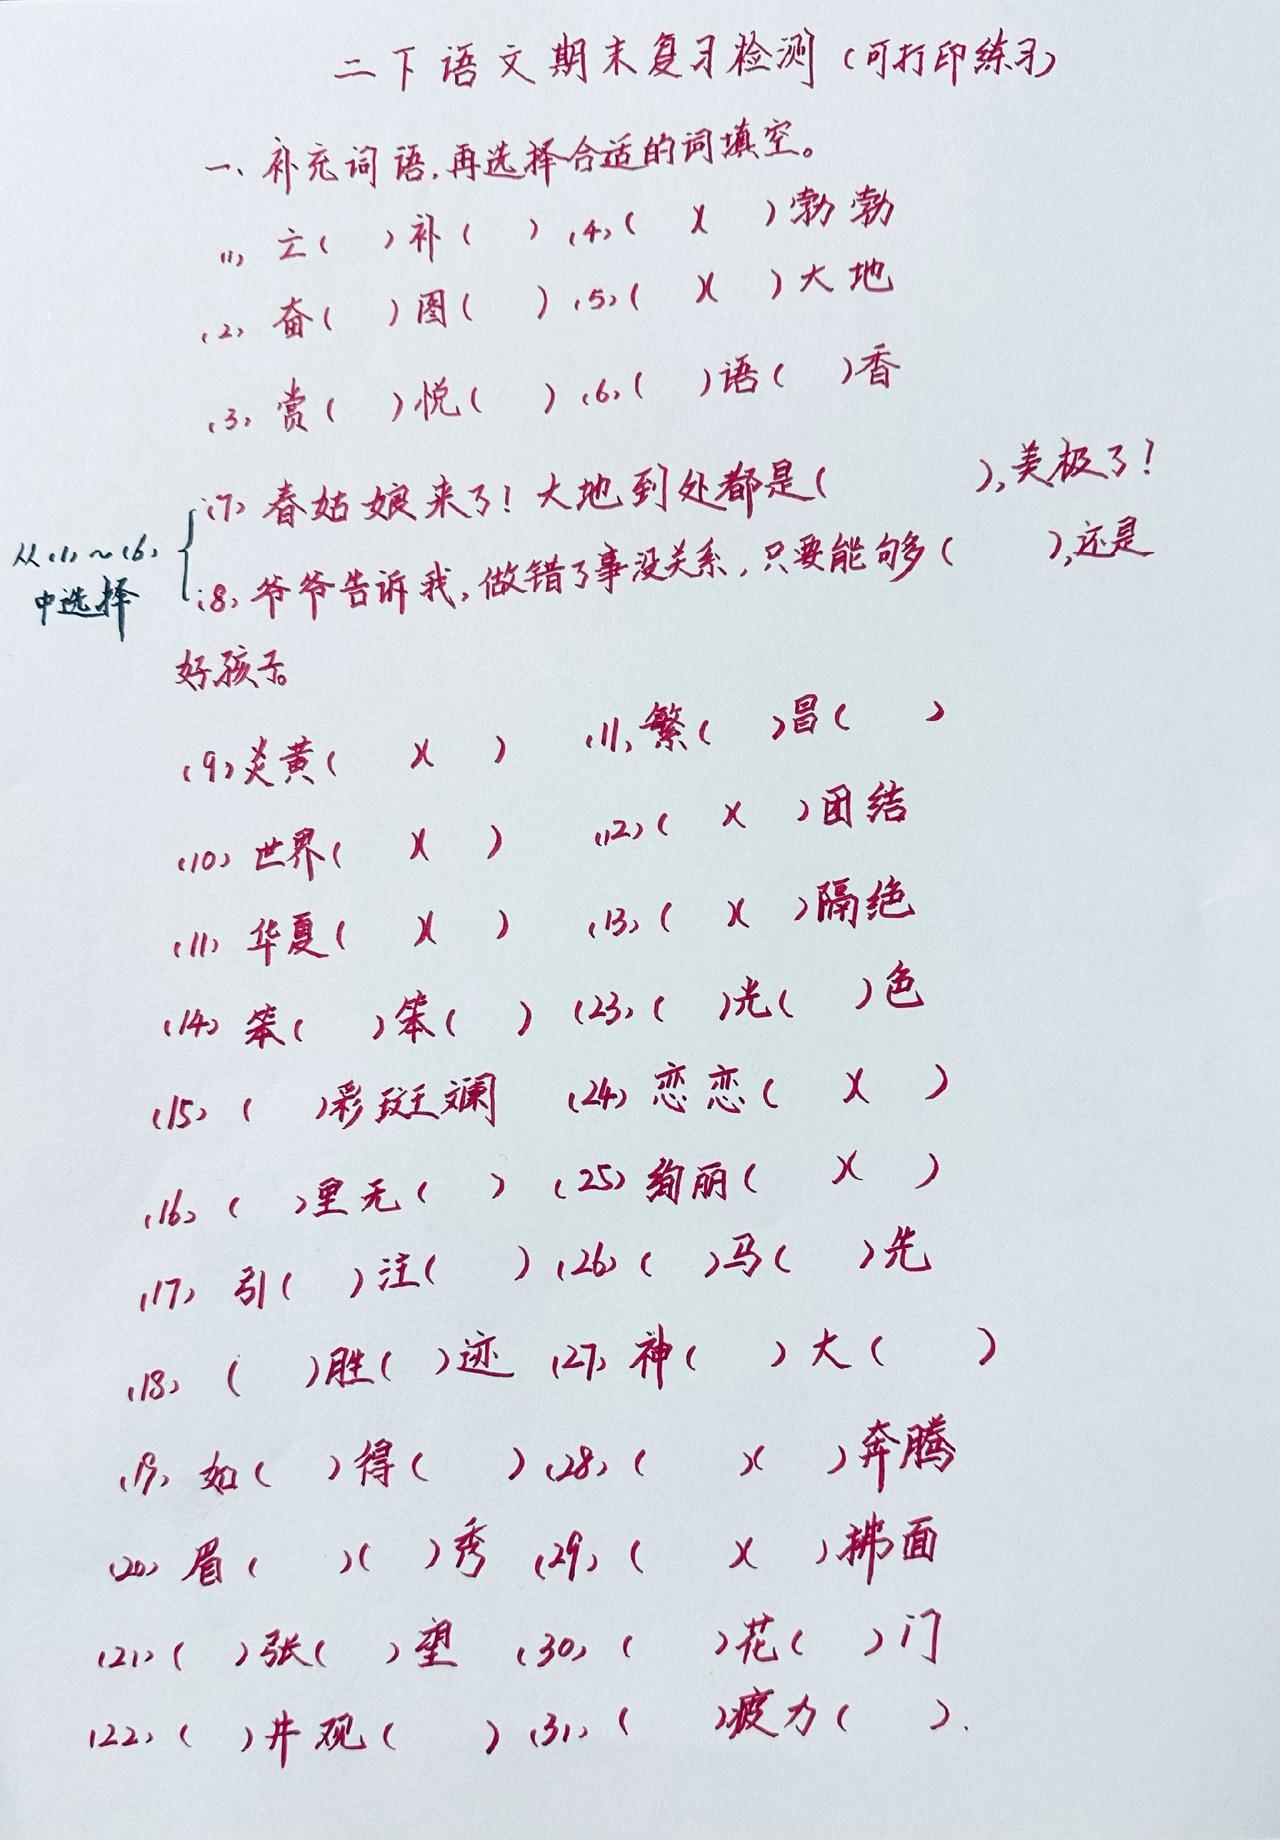 二下语文期末复习检测(可打印练习)
一、补充词语,再选择合适的词填空。
(1) 亡( )补( ) (4) ( )( )勃勃
(2) 奋( )图( ) (5) ( )( )大地
(3) 赏( )悦( ) (6) ( )语( )香
(7) 春姑娘来了!大地到处都是( ),美极了!
从(1)~(6)
中选择
(8) 爷爷告诉我,做错了事没关系,只要能够多( ),还是
好孩子。
(9) 炎黄( )( ) (11) 繁( )昌( )
(10) 世界( )( ) (12) ( )( )团结
(11) 华夏( )( ) (13) ( )( )隔绝
(14) 笨( )笨( ) (23) ( )光( )色
(15) ( )彩斑斓 (24) 恋恋( )( )
(16) ( )里无( ) (25) 绚丽( )( )
(17) 引( )注( ) (26) ( )马( )先
(18) ( )胜( )迹 (27) 神( )大( )
(19) 如( )得( ) (28) ( )( )奔腾
(20) 眉( )( )秀 (29) ( )( )拂面
(21) ( )张( )望 (30) ( )花( )门
(22) ( )井观( ) (31) ( )疲力( ).